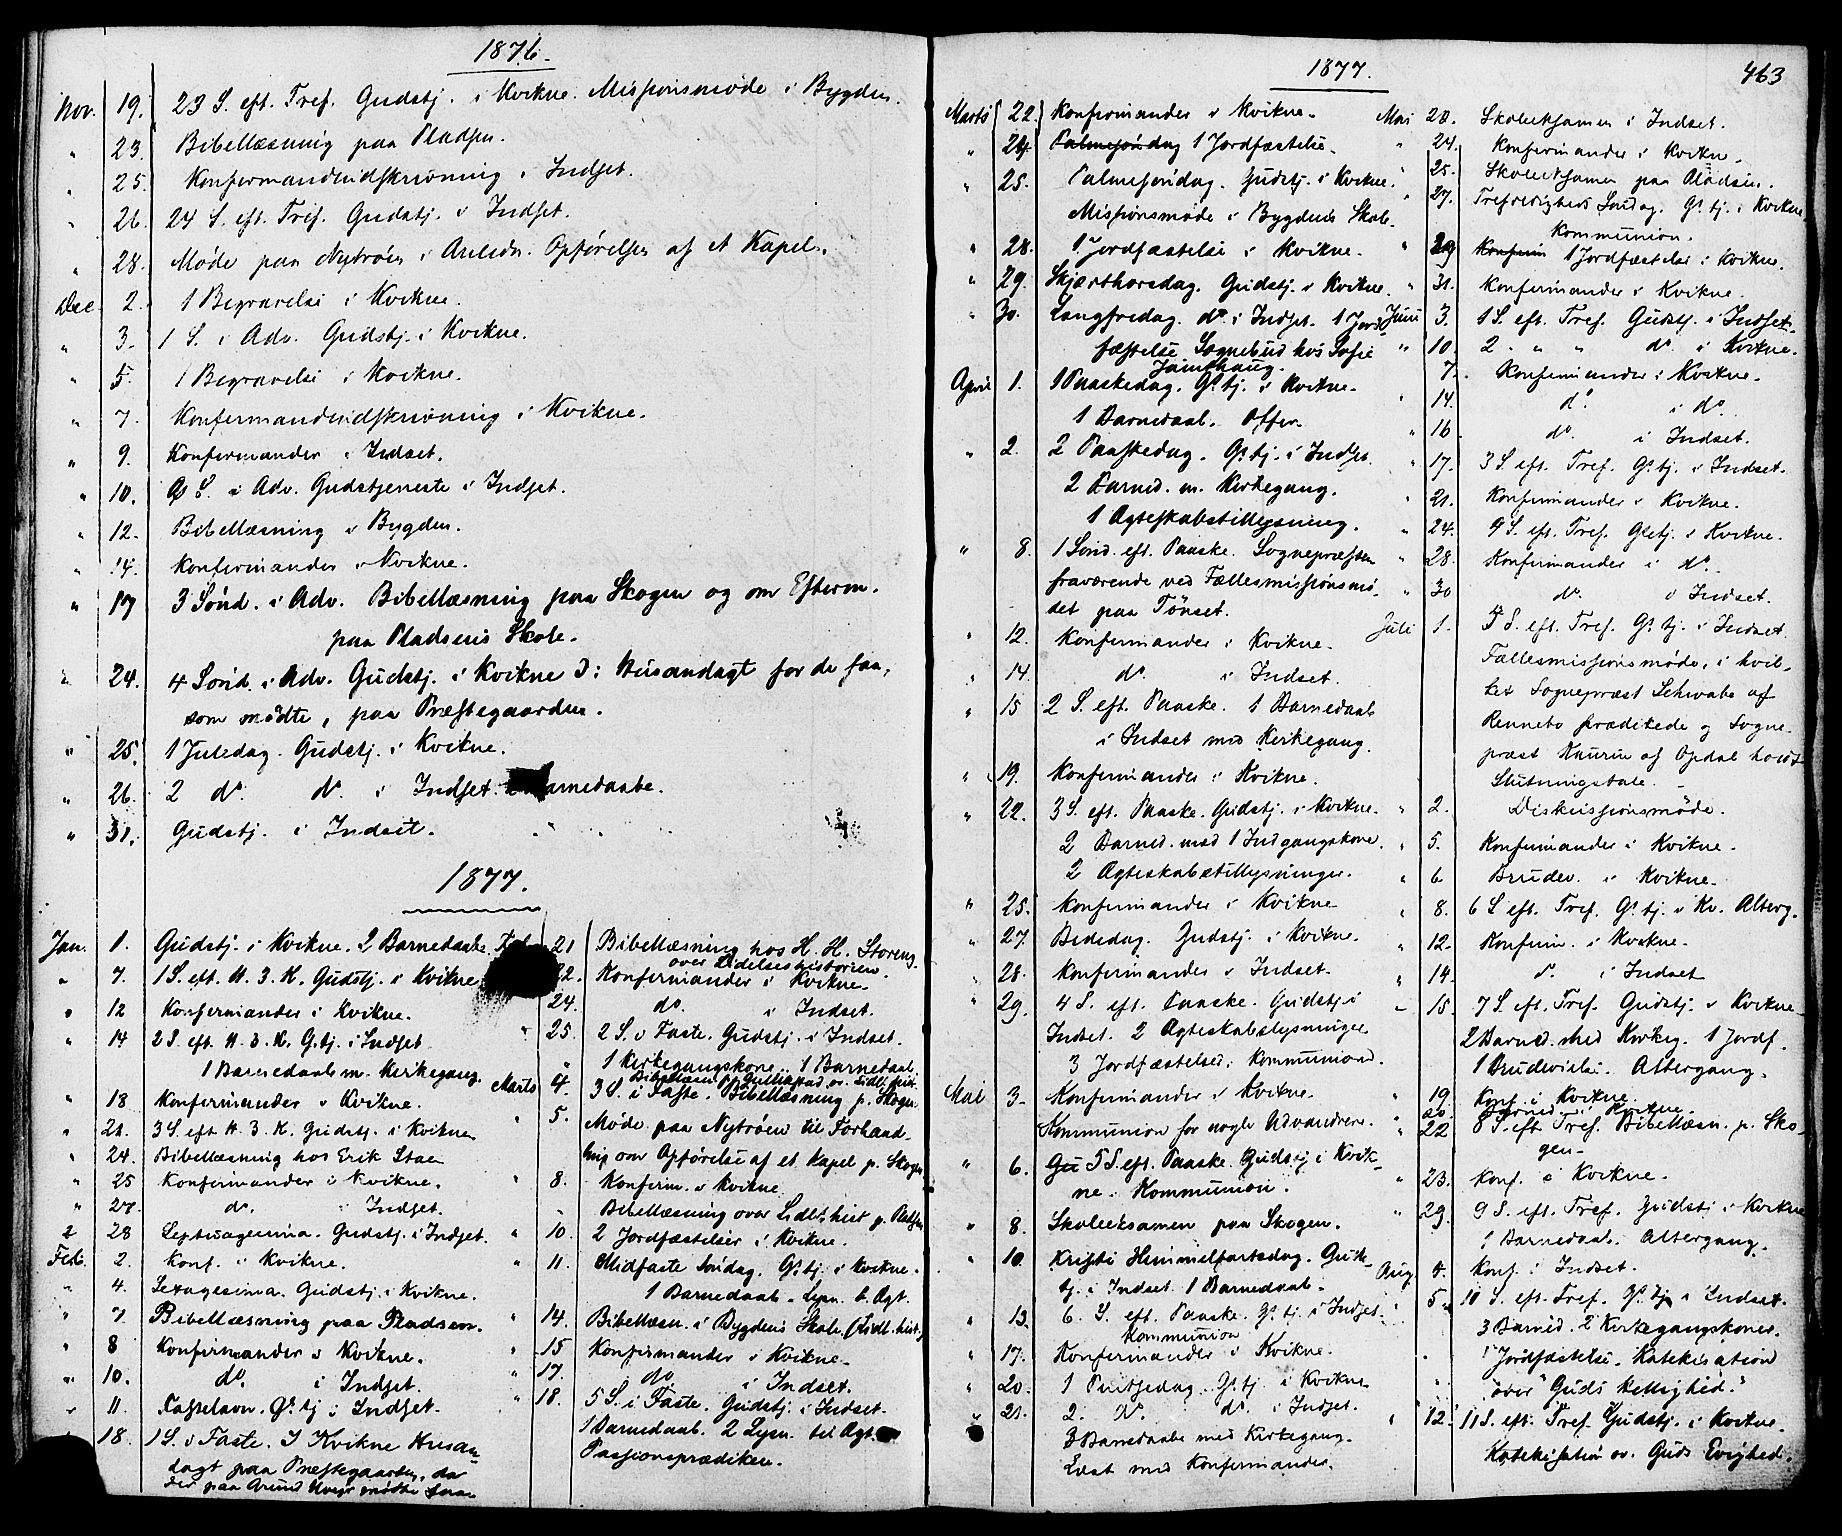 1876.
Nov. 19. 23 S. eft. Tref. Gudstj. i Kvikne. Missionsmøde i Bygden.
" 23. Bibellæsning paa Pladsen.
" 25. Konfirmandindskrivning i Indset.
" 26. 24 S. eft. Tref. Gudstj. i Indset.
" 28. Møde paa Nytrøen i Anledn. Opførelsen af et Kapel.
Dec. 2. 1 Begravelse i Kvikne.
" 3. 1 S. i Adv. Gudstj. i Kvikne.
" 5. 1 Begravelse i Kvikne.
" 7. Konfirmandindskrivning i Kvikne.
" 9. Konfirmander i Indset.
" 10. 2 S. i Adv. Gudstjeneste i Indset.
" 12. Bibellæsning i Bygden.
" 14. Konfirmander i Kvikne.
" 17 3 Sønd. i Adv. Bibellæsning paa Skogen og om Efterm.
paa Pladsens Skole.
" 24. 4 Sønd. i Adv. Gudstj. i Kvikne ɔ: Husandagt for de faa,
som mødte, paa Præstegaarden.
" 25. 1 Juledag. Gudstj. i Kvikne.
" 26. 2 do. do. i Indset. Barnedaabe.
" 31. Gudstj. i Indset.
1877.
Jan. 1. Gudstj. i Kvikne. 2 Barnedaabe.
" 7. 1 S. eft. H. 3. K. Gudstj. i Kvikne
" 12 Konfirmander i Kvikne.
" 14 2 S. eft. H. 3. K. G.tj. i Indset
1 Barnedaab m. Kirkegang.
" 18 Konfirmander i Kvikne.
" 21. 3 S. eft H. 3. K. Gudstj. i Kvikne
" 24. Bibellæsning hos Erik Stae
" 25 Konfirmander i Kvikne.
" 27. do. i Indset.
" 28 Septuagesima. Gudstj. i Indset.
Feb. 2. Konf. i Kvikne.
" 4. Sexagesima. Gudstj. i Kvikne.
" 7 Bibellæsning paa Pladsen.
" 8 Konfirmander i Kvikne.
" 10. do. i Indset.
" 11. Fastelavn. G.tj i Indset.
18. 1 S. i Faste. I Kvikne Husan-
dagt paa Præstegaarden, da
der paa Grund mødte faa
Feb. 21 Bibellæsning hos H. H. Storeng
over Lidelseshistorien.
22. Konfirmander i Kvikne.
24. do. i Indset.
" 25. 2 S. i Faste. Gudstj. i Indset.
" 1 Kirkegangskone. 1 Barnedaab.
Marts 4. 3 S. i Faste. Bibellæsning p. Skogen
" 5. Møde paa Nytrøen til Forhand-
ling om Opførelse af et Kapel p. Skogen
" 8. Konfirm. i Kvikne
Bibellæsning over Lidls. hist p. Pladsen
" 10. 2 Jordfæstelser i Kvikne.
" 11. Midfaste Søndag. G.tj. i Kvikne.
1 Barnedaab. Lysn. t. Ægt.
" 14. Bibellæsn. i Bygdens Skole (Lidl. hist.)
" 15 Konfirmander i Kvikne.
" 17. do i Indset.
" 18. 5 S. i Faste. Gudstj. i Indset.
1 Barnedaab. 2 Lysn. til Ægt.
Passionsprædiken.
1877.
Marts 22. Konfirmander i Kvikne.
" 24 Palmesøndag 1 Jordfæstelse.
" 25. Palmesøndag. Gudstj. i Kvikne.
Missionsmøde i Bygdens Skole.
" 28. 1 Jordfæstelse i Kvikne.
" 29. Skjærthorsdag. Gudstj. i Kvikne.
" 30. Langfredag. do. i Indset. 1 Jord-
fæstelse Sognebud hos Sofie
April 1. 1 Paaskedag. G.tj. i Kvikne.
1 Barnedaab. Offer.
" 2. 2 Paaskedag. G.tj. i Indset.
2 Barned. m. Kirkegang.
1 Ægteskabstillysning.
" 8. 1 Sønd. eft. Paaske. Sognepræsten
fraværende ved Fællesmissionsmø-
det paa Tönset.
" 12. Konfirmander i Kvikne.
" 14. do. i Indset.
" 15 2 S. eft. Paaske. 1 Barnedaab
i Indset med Kirkegang.
" 19. Konfirmander i Kvikne.
" 22. 3 S. eft. Paaske. Gudstj. i Kvikne.
2 Barned. med 1 Indgangskone.
2 Ægteskabstillysninger.
" 25. Konfirmander i Kvikne
" 27. Bededag. Gudstj. i Kvikne.
" 28. Konfirmander i Indset.
" 29. 4 S. eft. Paaske. Gudstj i
Indset. 2 Ægteskabslysninger
3 Jordfæstelser. Kommunion.
Mai 3. Konfirmander i Kvikne.
Kommunion for nogle Udvandrere.
" 6. Gu 5 S. eft. Paaske. Gudstj i Kvik-
ne. Kommunion.
" 8. Skoleeksamen paa Skogen.
" 10. Kristi Himmelfartsdag. Guds-
tj. i Indset. 1 Barnedaab.
" 13. 6. S. eft. Paaske. G.tj. i Indset.
Kommunion
" 17. Konfirmander i Kvikne.
" 20. 1 Pintsedag. G.tj. i Kvikne
" 21. 2. do. do. i Indset.
3 Barnedaabe med Kirkegang.
Læst med Konfirmander.
463
Mai 20. Skoleeksamen i Indset.
" 24. Konfirmander i Kvikne.
25. Skoleeksamen paa Pladsen.
" 27. Trefoldigheds Søndag. G.tj. i Kvikne
Kommunion.
" 29 Konfirm 1 Jordfæstelse i Kvikne.
" 31. Konfirmander i Kvikne.
Juni 3. 1 S. eft. Tref. Gudstj. i Indset.
" 10. 2 " " " do. i Kvikne.
7. Konfirmander i Kvikne.
" 14. do. i do.
" 16 do. i Indset.
" 17. 3 S. eft. Tref. G.tj. i Indset.
" 21. Konfirmander i Kvikne.
" 24. 4 S. eft. Tref. Gtj. i Kvikne.
" 28. Konfirmander i do.
" 30 do. i Indset.
Juli 1. 5 S. eft. Tref. G.tj. i Indset.
Fællesmissionsmøde, i hvil-
ket Sognepræst Schwabe af
Rennebo prædikede og Sogne-
præst Kaurin af Opdal holdt
Slutningstale.
" 2. Diskussionsmøde.
" 5. Konfirmander i Kvikne.
" 6 Brudev. i Kvikne.
" 8. 6 S eft. Tref. G.tj. i Kv. Alterg.
" 12. Konfirm. i Kvikne.
" 14. d. i Indset
" 15. 7 S. eft. Tref. Gudstj. i Kvikne
2 Barned. med Kirkeg. 1 Jordf.
1 Brudevielse. Altergang.
" 19 Konf. i Kvikne.
" 20. Barned. i Kvikne.
" 22 8 S. eft Tref. Bibellæsn. p. Sko-
gen.
" 23. Konf. i Kvikne.
" 29. 9 S. eft. Tref. Gudstj. i Kvikne
1 Barnedaab. Altergang.
Aug. 4. Konf. i Indset.
5. 10 S. eft. Tref. G.tj. i Indset.
3 Barned. 2 Kirkegangskoner.
1 Jordfæstelse. Katekisation
over "Guds Hellighed."
" 12. 11 S. eft. Tref. Gudstj. i Kvikne.
Katekisation ov. Guds Evighed.